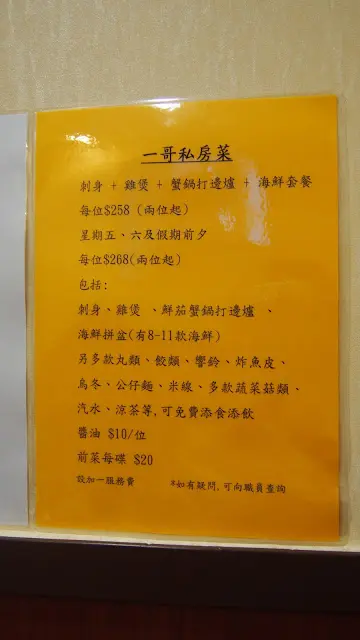 一哥私房菜
刺身 + 雞煲 + 蟹鍋打邊爐 + 海鮮套餐
每位$258 (兩位起)
星期五、六及假期前夕
每位$268(兩位起)
包括:
刺身、雞煲 、鮮茄蟹鍋打邊爐 、
海鮮拼盆(有8-11款海鮮)
另多款丸類、餃類、響鈴、炸魚皮、
烏冬、公仔麵、米線、多款蔬菜菇類、
汽水、涼茶等,可免費添食添飲
醬油 $10/位
前菜每碟 $20
設加一服務費 *如有疑問,可向職員查詢